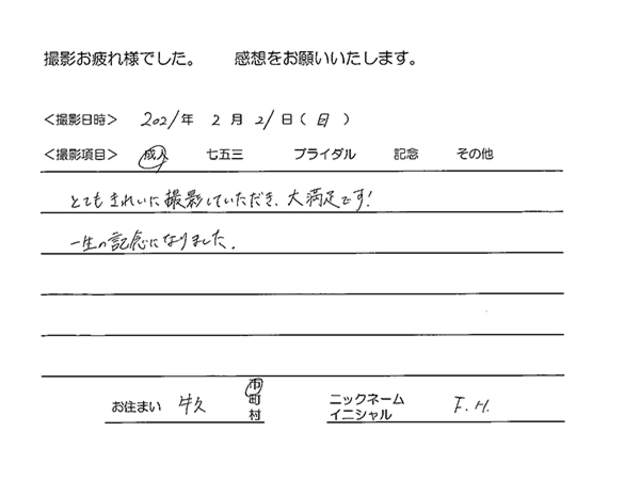 撮影お疲れ様でした。 感想をお願いいたします。
＜撮影日時＞ 2021年 2月 21日(日)
＜撮影項目＞ 成人 七五三 ブライダル 記念 その他
とてもきれいに撮影していただき、大満足です!
一生の記念になりました。
お住まい 牛久 市 町 村
ニックネーム イニシャル F.H.